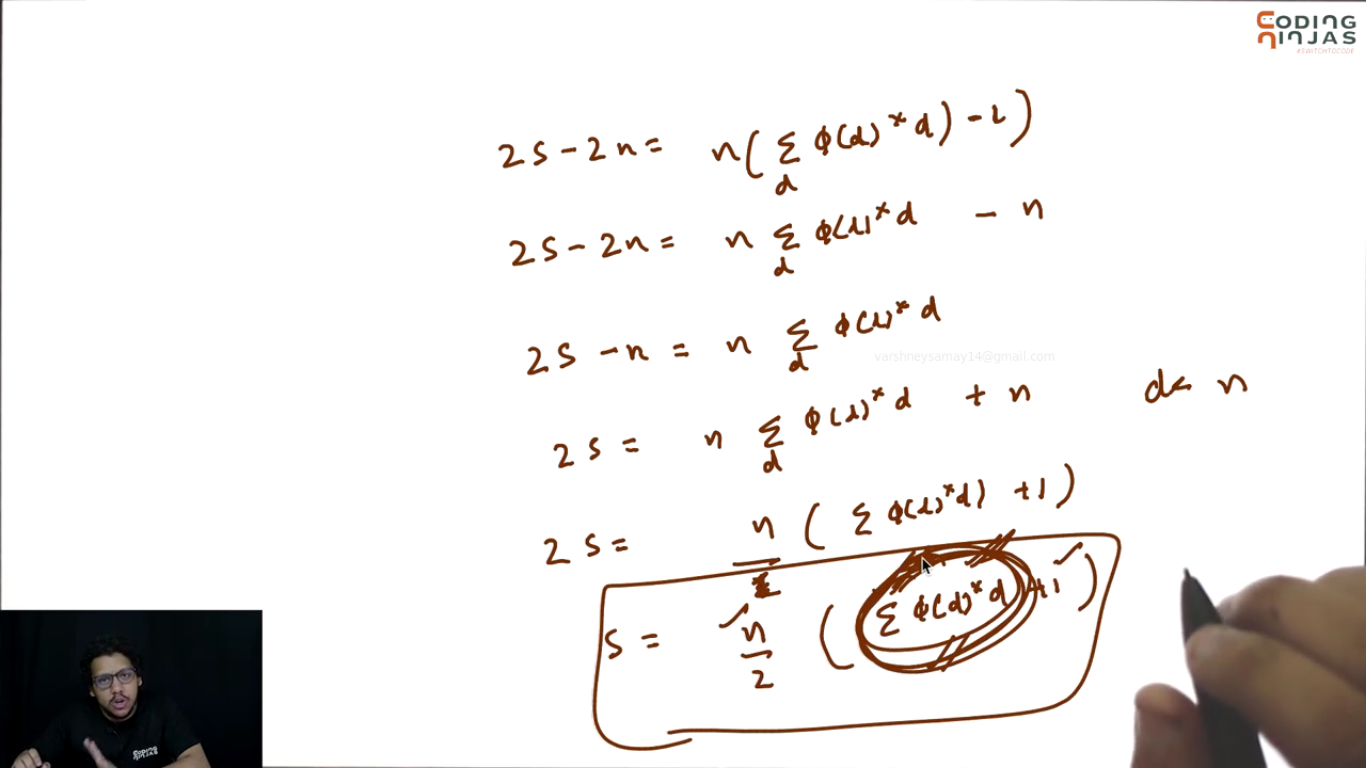 CODING
NINJAS
#SWITCHTOCODE
2S - 2n = n(Σ φ(d) * d) - 1)
d
2S - 2n = n Σ φ(d) * d - n
d
2S - n = n Σ φ(d) * d
d
varshneysamay14@gmail.com
2S = n Σ φ(d) * d + n d< n
d
2S = n ( Σ φ(d) * d) + 1 )
S = n/2 ( Σ φ(d) * d + 1 )
CODING
NINJAS